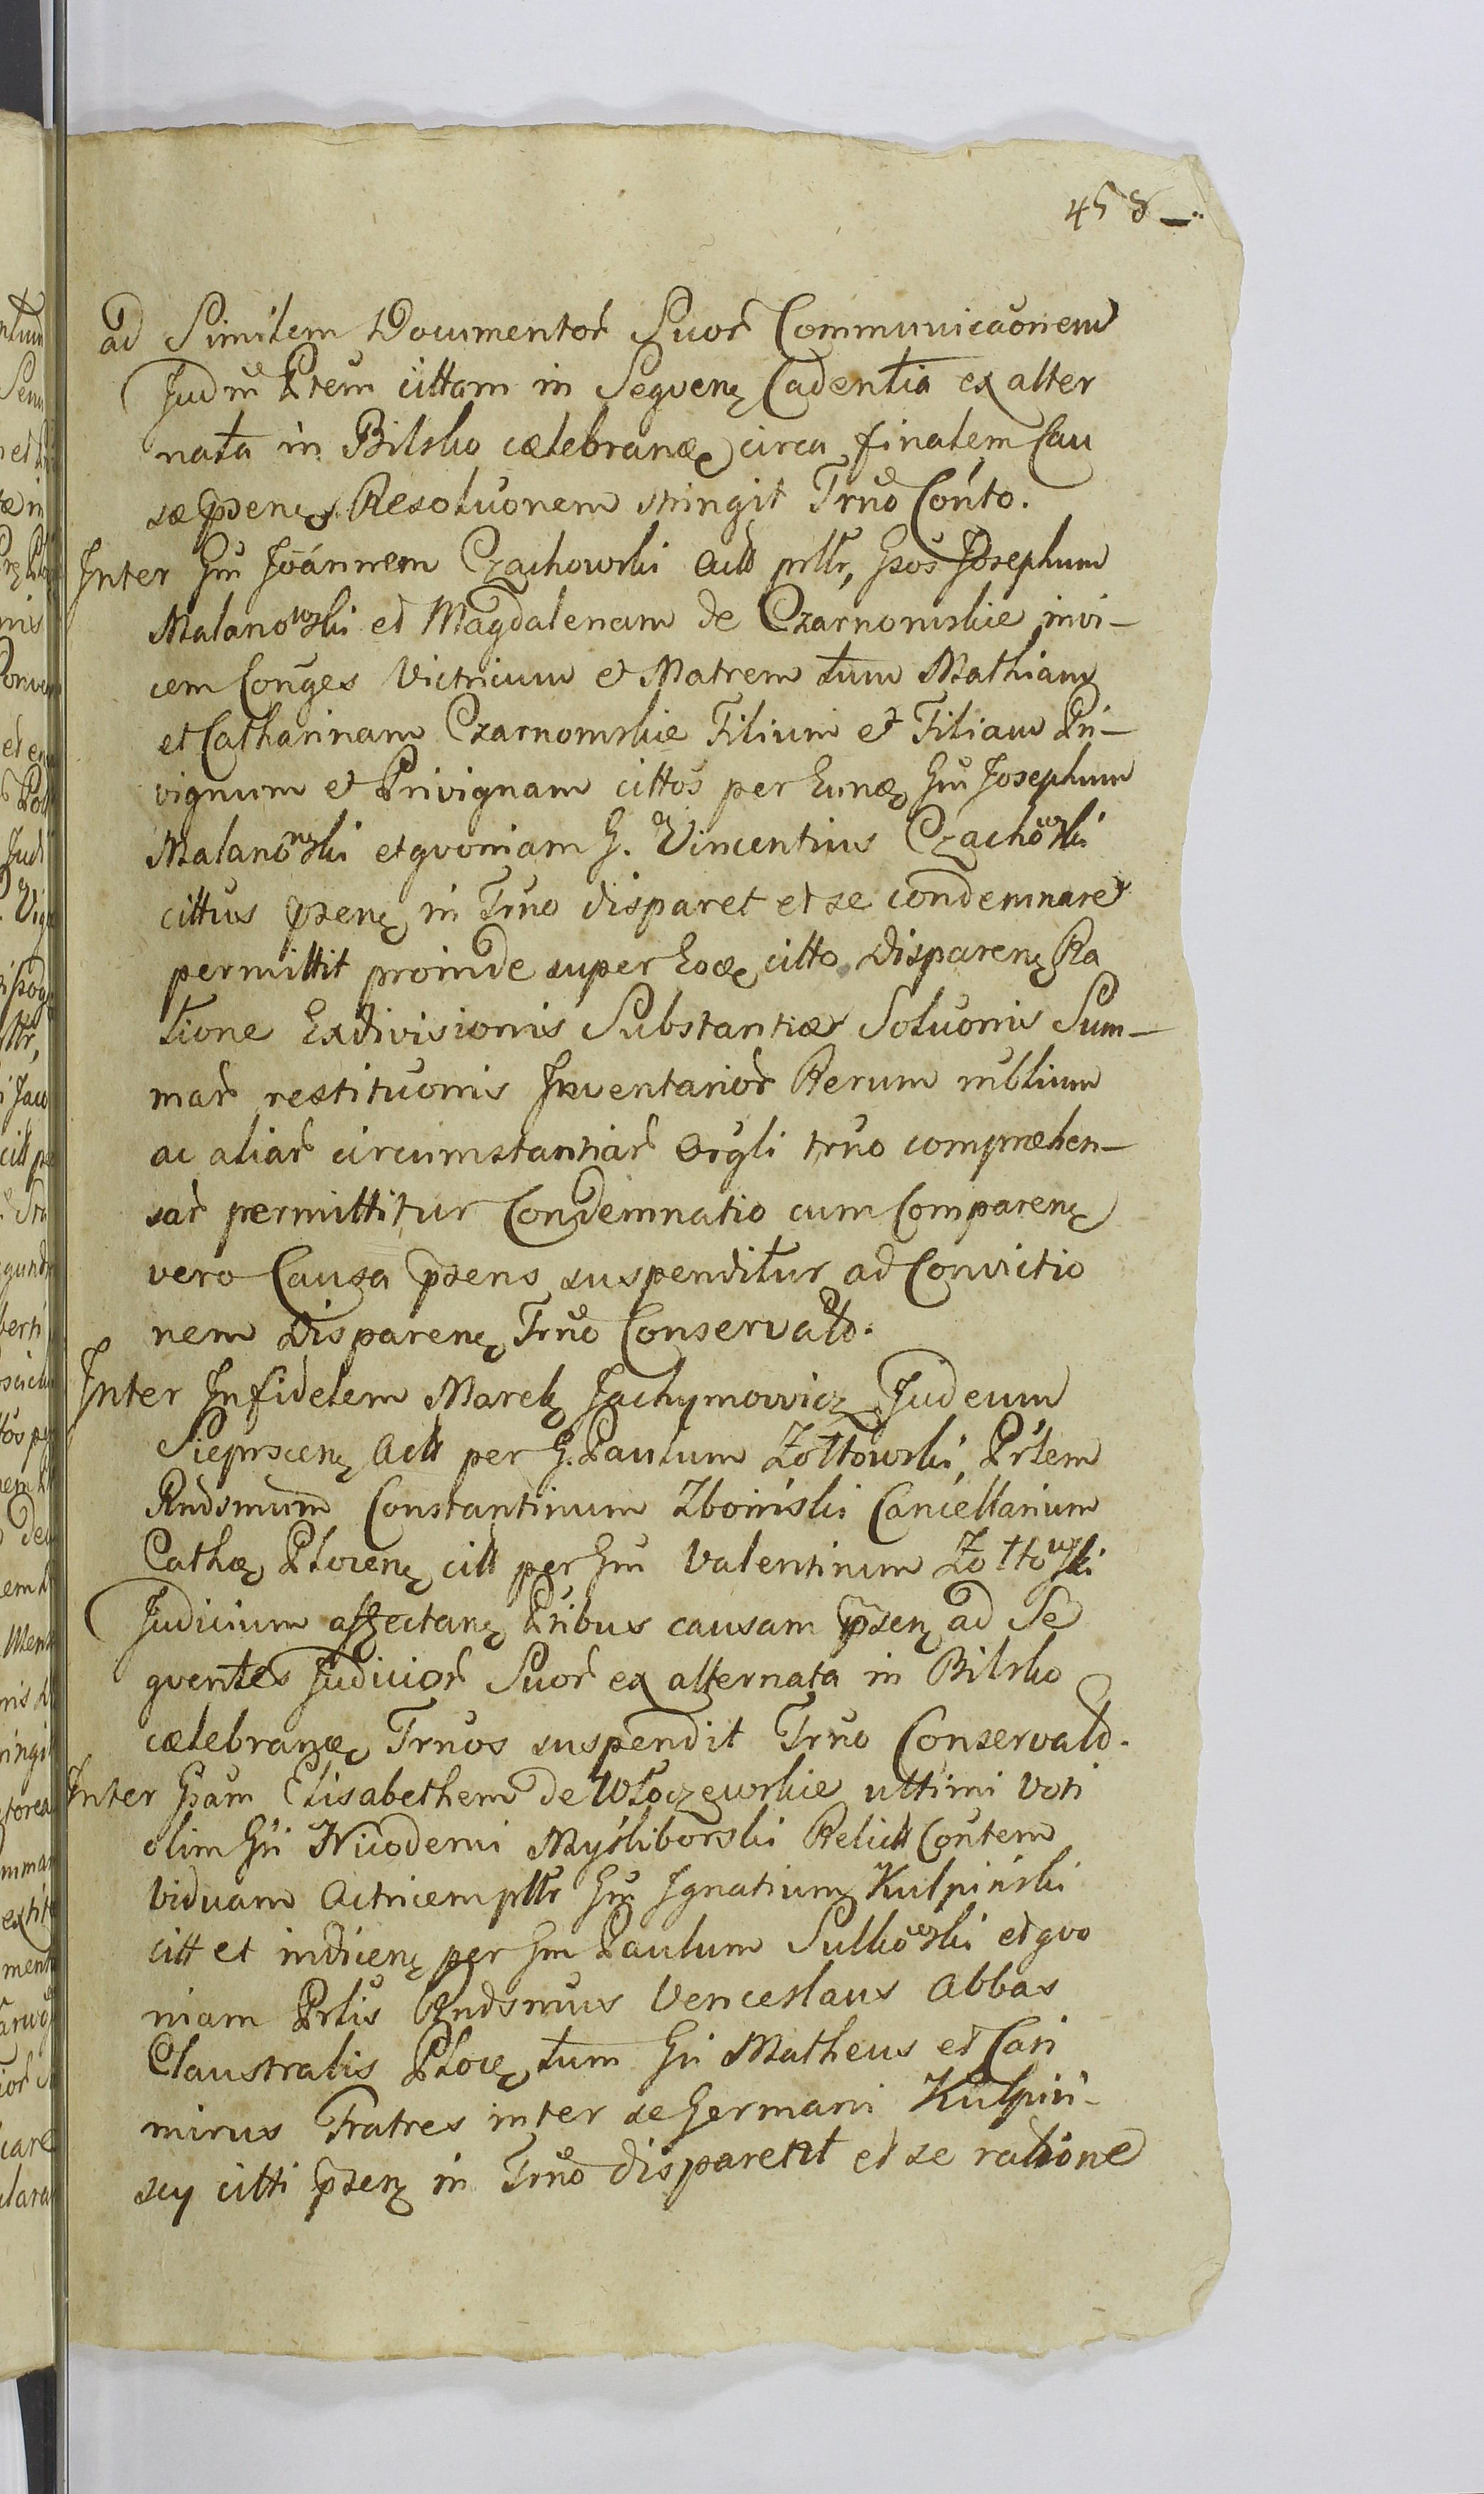 458
ad Similem Documentor Suor Communicaōnem
Judm Ptem cittam in Seqvenę Cadentia ex alter
nata in Bilsko cælebranæ circa finalem Cau
sæ psenęs Resoluōnem stringit Trno Cónto.
Inter Gm Joánnem Czachowski Act prltr, Gsos Josephum
Malanowski et Magdalenam de Czarnomskie invi-
cem Conges Victricum et Matrem tum Mathiam
et Catharinam Czarnomskie Filium et Filiam Pri-
vignum et Privignam cittos per Eunæ Gm Josephum
Malanowski etqvoniam G. Vincentius Czachowski
cittus psenę in Trno disparet et se condemnare
permittit proinde super Eoæ citto disparenę Ra
tione Exdivisionis Substantiæ Soluōnis Sum-
mar restituōnis Inventarior Rerum mblium
ac aliar circumstantiar Orgli trno compræhen-
sar permittitur Condemnatio cum Comparenę
vero Causa psens suspenditur ad Convictio
nem disparenę Trno Conservato.
Inter Infidelem Marek Jachymowicz Judeum
Sieprscenę Act per G. Paulum Zołtowski, Prlem
Rndsmum Constantinum Zboiński Cancellarium
Cathæ Plocenę citt per Gm Valentinum Zołtowski
Judicium affectanę Ptibus causam psenę ad Se
qventes Judicior Suor ex alternata in Bilsko
cælebranæ Trnos suspendit Trno Conservato.
Inter Gsam Elisabethem de Włoczewskie ultimi voti
olim Gn Nicodemi Mysliborski Relict Contem
viduam Actricem pltr Gm Ignatium Kulpiński
citt et indicenę per Gm Paulum Sulkowski etqvo
niam Prlis Rndsmus Venceslaus Abbas
Claustralis Plocę tum Gn Matheus et Casi
mirus Fratres inter se Germani Kulpiń-
scy citti psenę in Trno disparent et se ratione